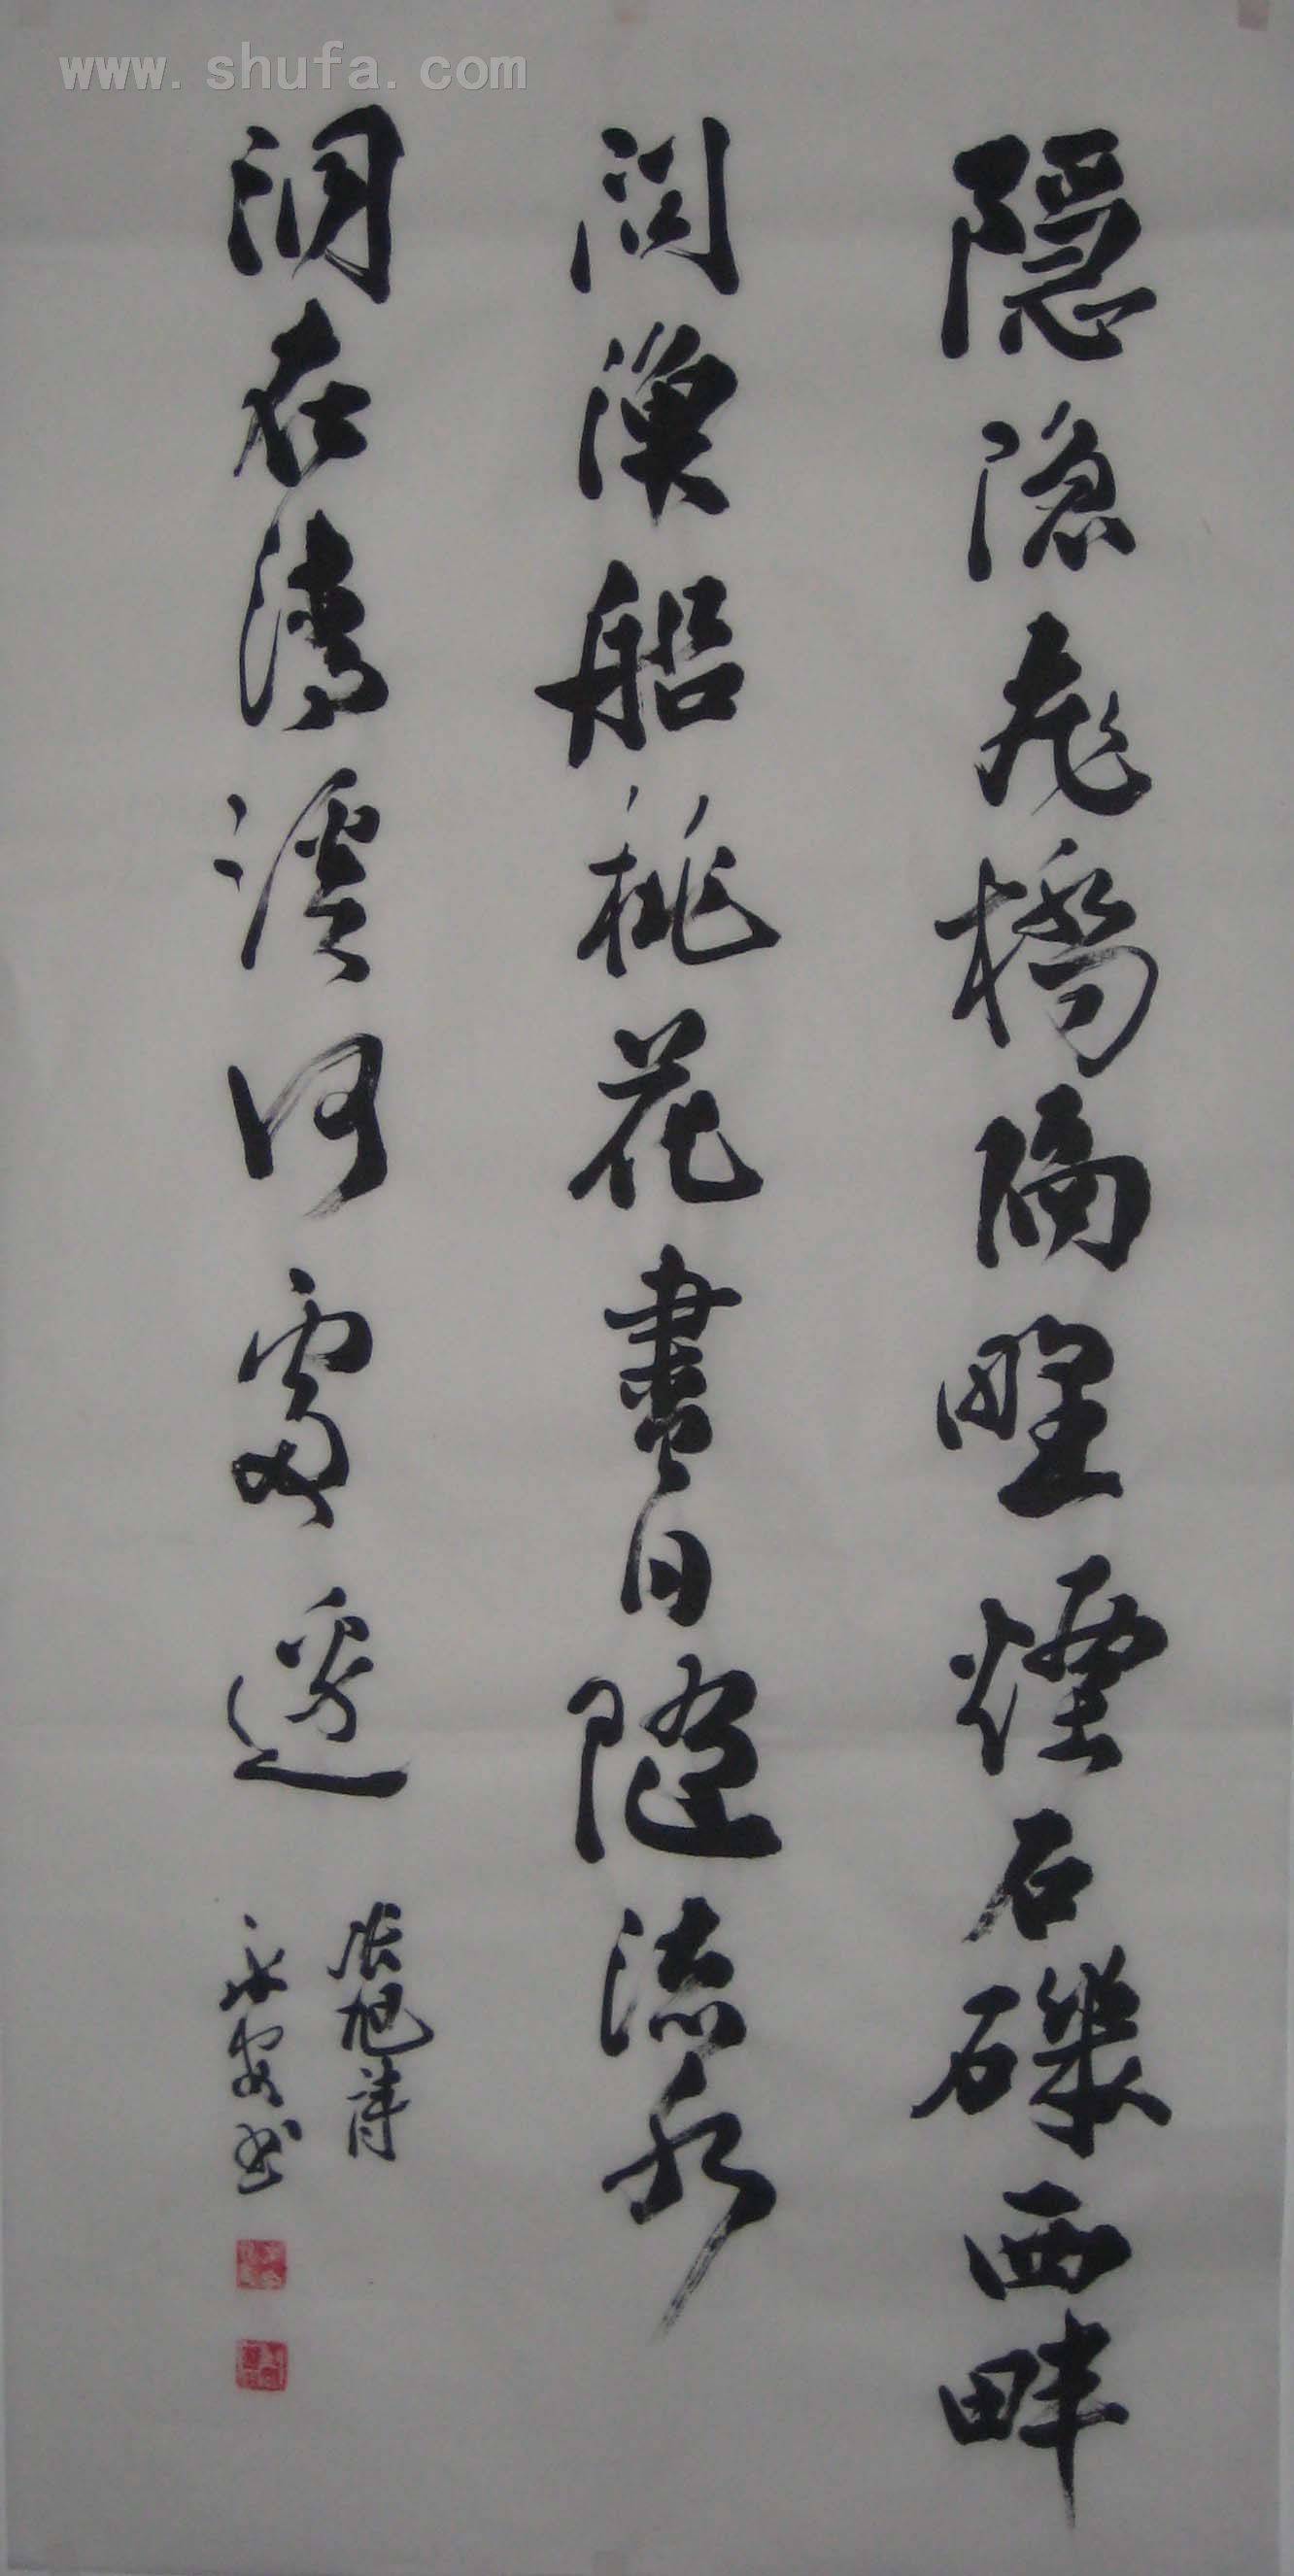 www.shufa.com
隱隱飛橋隔野煙石磯西畔
問漁船桃花盡日隨流水
洞在清溪何處邊
張旭詩
永安书